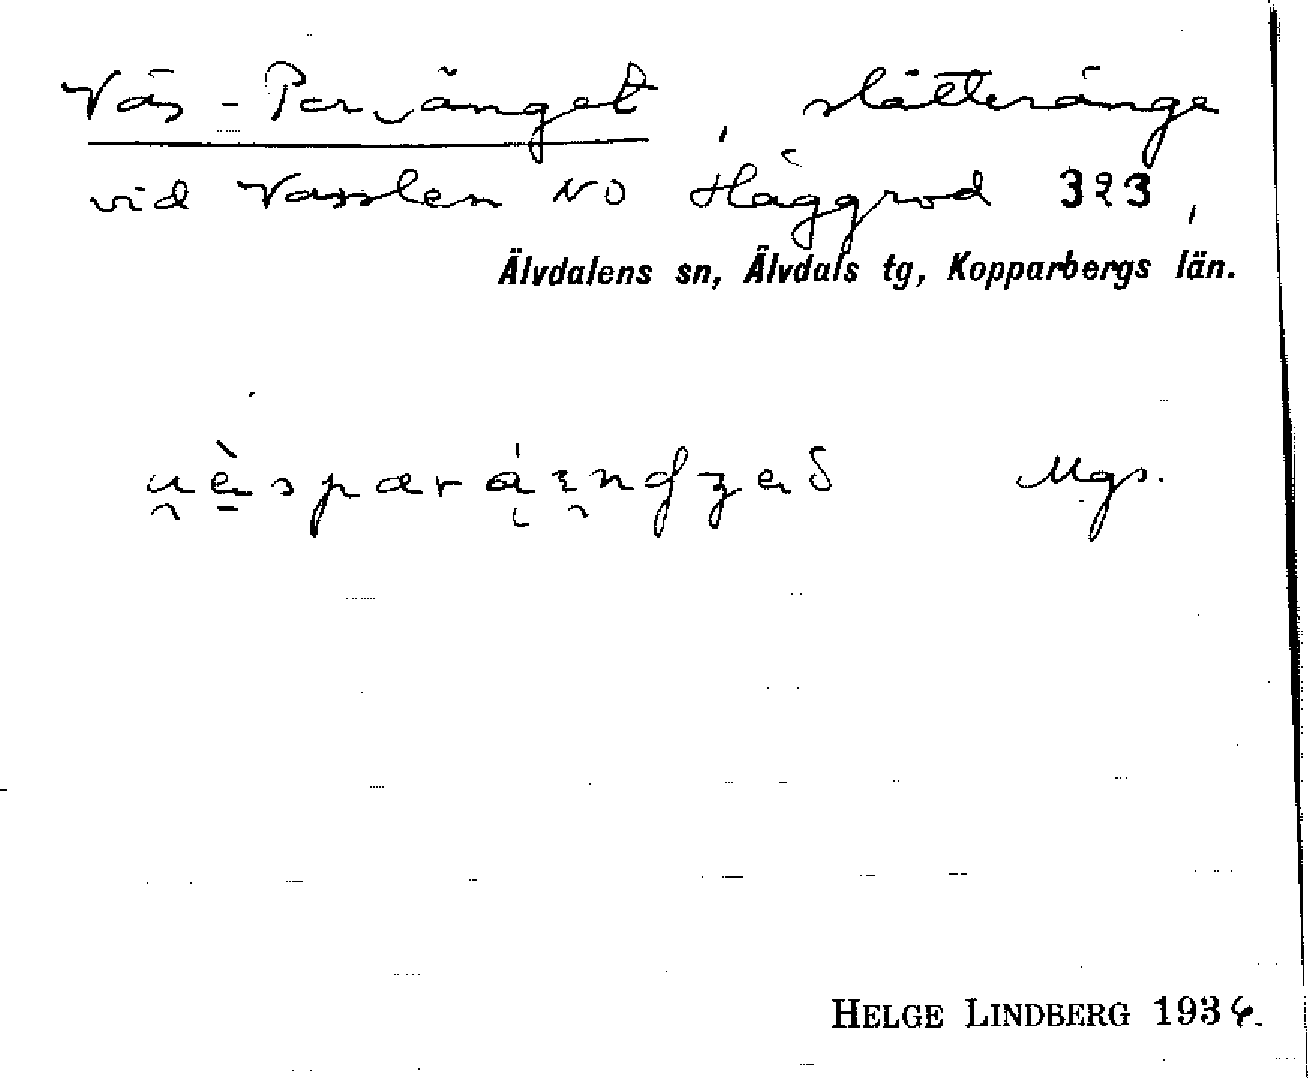 Väs-Parvänget, slåtteränge
vid Vasslen NO Häggrod 323,
Älvdalens sn, Älvdals tg, Kopparbergs län.
Mgs.
HELGE LINDBERG 1936.